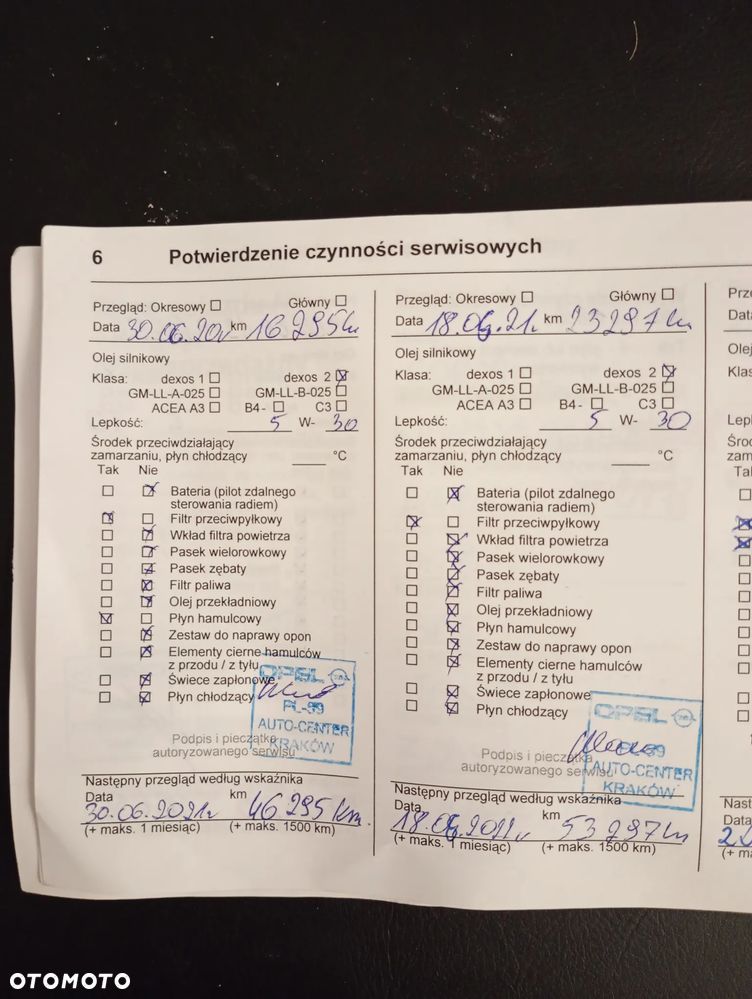 6 Potwierdzenie czynności serwisowych
Przegląd: Okresowy Główny
Data 30.06.20r km 16 295 km
Olej silnikowy
Klasa: dexos 1 dexos 2
GM-LL-A-025 GM-LL-B-025
ACEA A3 B4 - C3
Lepkość: 5 W- 30
Środek przeciwdziałający
zamarzaniu, płyn chłodzący °C
Tak Nie
Bateria (pilot zdalnego
sterowania radiem)
Filtr przeciwpyłkowy
Wkład filtra powietrza
Pasek wielorowkowy
Pasek zębaty
Filtr paliwa
Olej przekładniowy
Płyn hamulcowy
Zestaw do naprawy opon
Elementy cierne hamulców
z przodu / z tyłu
Świece zapłonowe
Płyn chłodzący
OPEL
PL-99
AUTO-CENTER
KRAKÓW
Podpis i pieczątka
autoryzowanego serwisu
Następny przegląd według wskaźnika
Data km
30.06.2021r 46 295 km.
(+ maks. 1 miesiąc) (+ maks. 1500 km)
Przegląd: Okresowy Główny
Data km 23 297 km
Olej silnikowy
Klasa: dexos 1 dexos 2
GM-LL-A-025 GM-LL-B-025
ACEA A3 B4 - C3
Lepkość: 5 W- 30
Środek przeciwdziałający
zamarzaniu, płyn chłodzący °C
Tak Nie
Bateria (pilot zdalnego
sterowania radiem)
Filtr przeciwpyłkowy
Wkład filtra powietrza
Pasek wielorowkowy
Pasek zębaty
Filtr paliwa
Olej przekładniowy
Płyn hamulcowy
Zestaw do naprawy opon
Elementy cierne hamulców
z przodu / z tyłu
Świece zapłonowe
Płyn chłodzący
OPEL
AUTO-CENTER
KRAKÓW
Podpis i pieczątka
autoryzowanego serwisu
Następny przegląd według wskaźnika
Data km
53 297 km
(+ maks. 1 miesiąc) (+ maks. 1500 km)
OTOMOTO